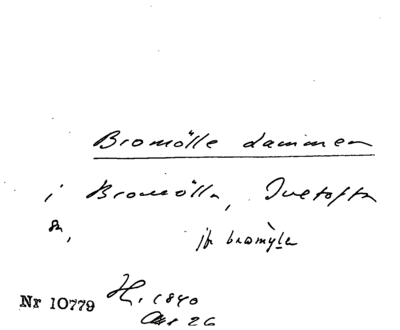 Bromölle dammen
i Bromölla, Ivetofta
sn, jfr bromỳla
Nr 10779 H. 1840
26